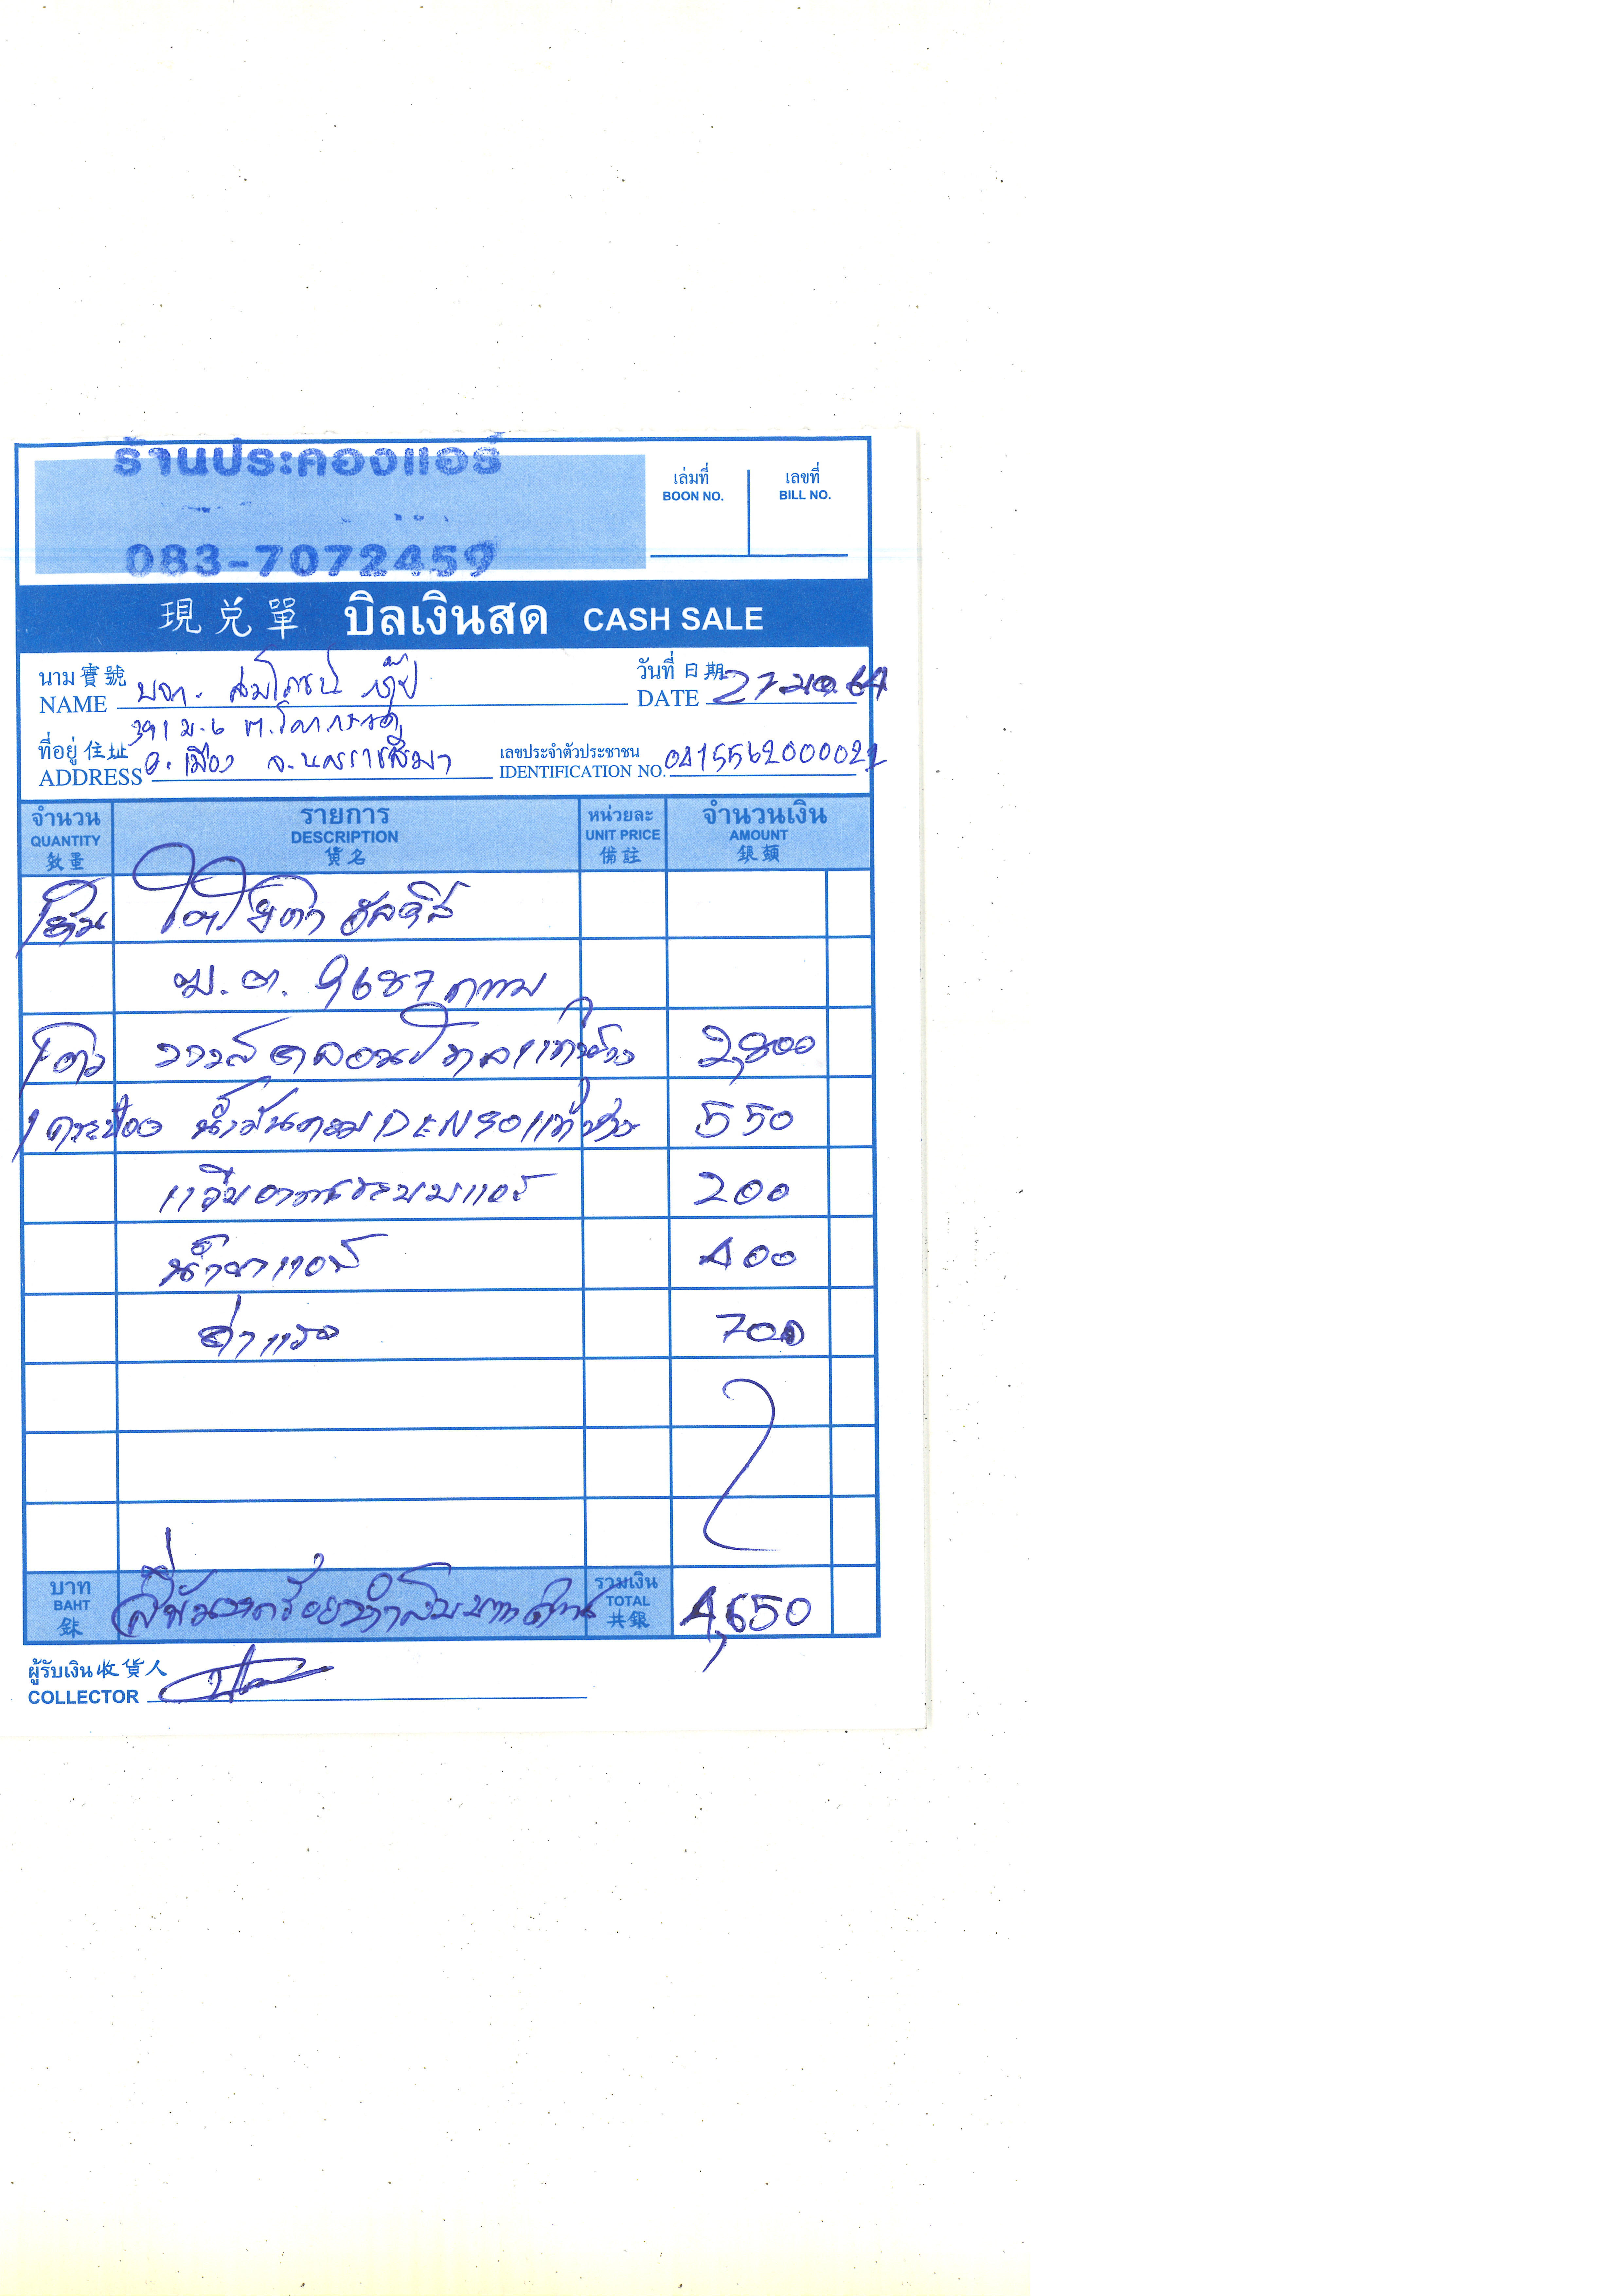 ร้านประคองแอร์
083-7072459
เล่มที่ เลขที่
BOON NO. BILL NO.
現兌單 บิลเงินสด CASH SALE
นาม寶號 วันที่ 日期
NAME บจก. DATE 27 64
391 ม.6 ต.โคกกรวด
ที่อยู่ 住址 เลขประจำตัวประชาชน
ADDRESS อ.เมือง จ.นครราชสีมา IDENTIFICATION NO.
จำนวน รายการ หน่วยละ จำนวนเงิน
QUANTITY DESCRIPTION UNIT PRICE AMOUNT
數量 貨名 備註 銀額
1คัน โตโยต้า
9687 กทม
1ตัว แท้ห้าง 2,800
1กระป๋อง น้ำมันคอม DENSO แท้ห้าง 550
ระบบแอร์ 200
น้ำยาแอร์ 400
ค่าแรง 700
บาท สี่พันหกร้อยห้าสิบบาทถ้วน รวมเงิน 4,650
BAHT TOTAL
銖 共銀
ผู้รับเงิน 收貨人
COLLECTOR